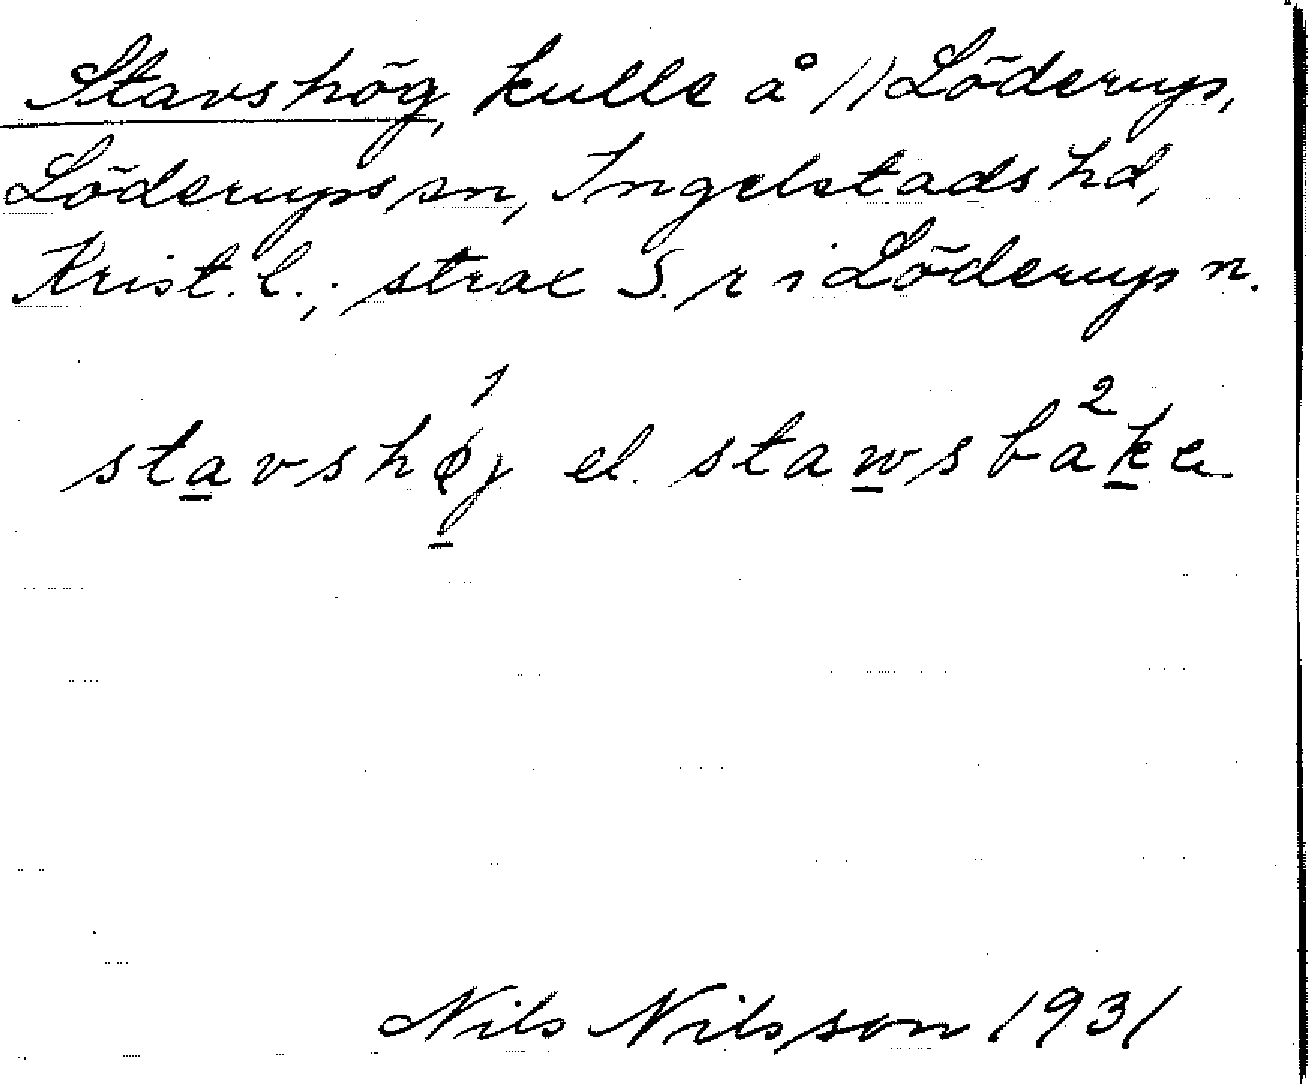 Stavshög, kulle å 11 Löderup,
Löderups sn, Ingelstads hd,
Krist. l.; strax S. r i Löderup n.
stavshøj el. stawsbakan
Nils Nilsson 1931